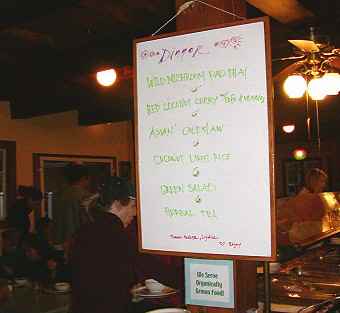 Dinner
WILD MUSHROOM PAD THAI
RED COCONUT CURRY
ASIAN COLESLAW
COCONUT LIME RICE
GREEN SALAD
HERBAL TEA
We Serve
Organically
Grown Food!